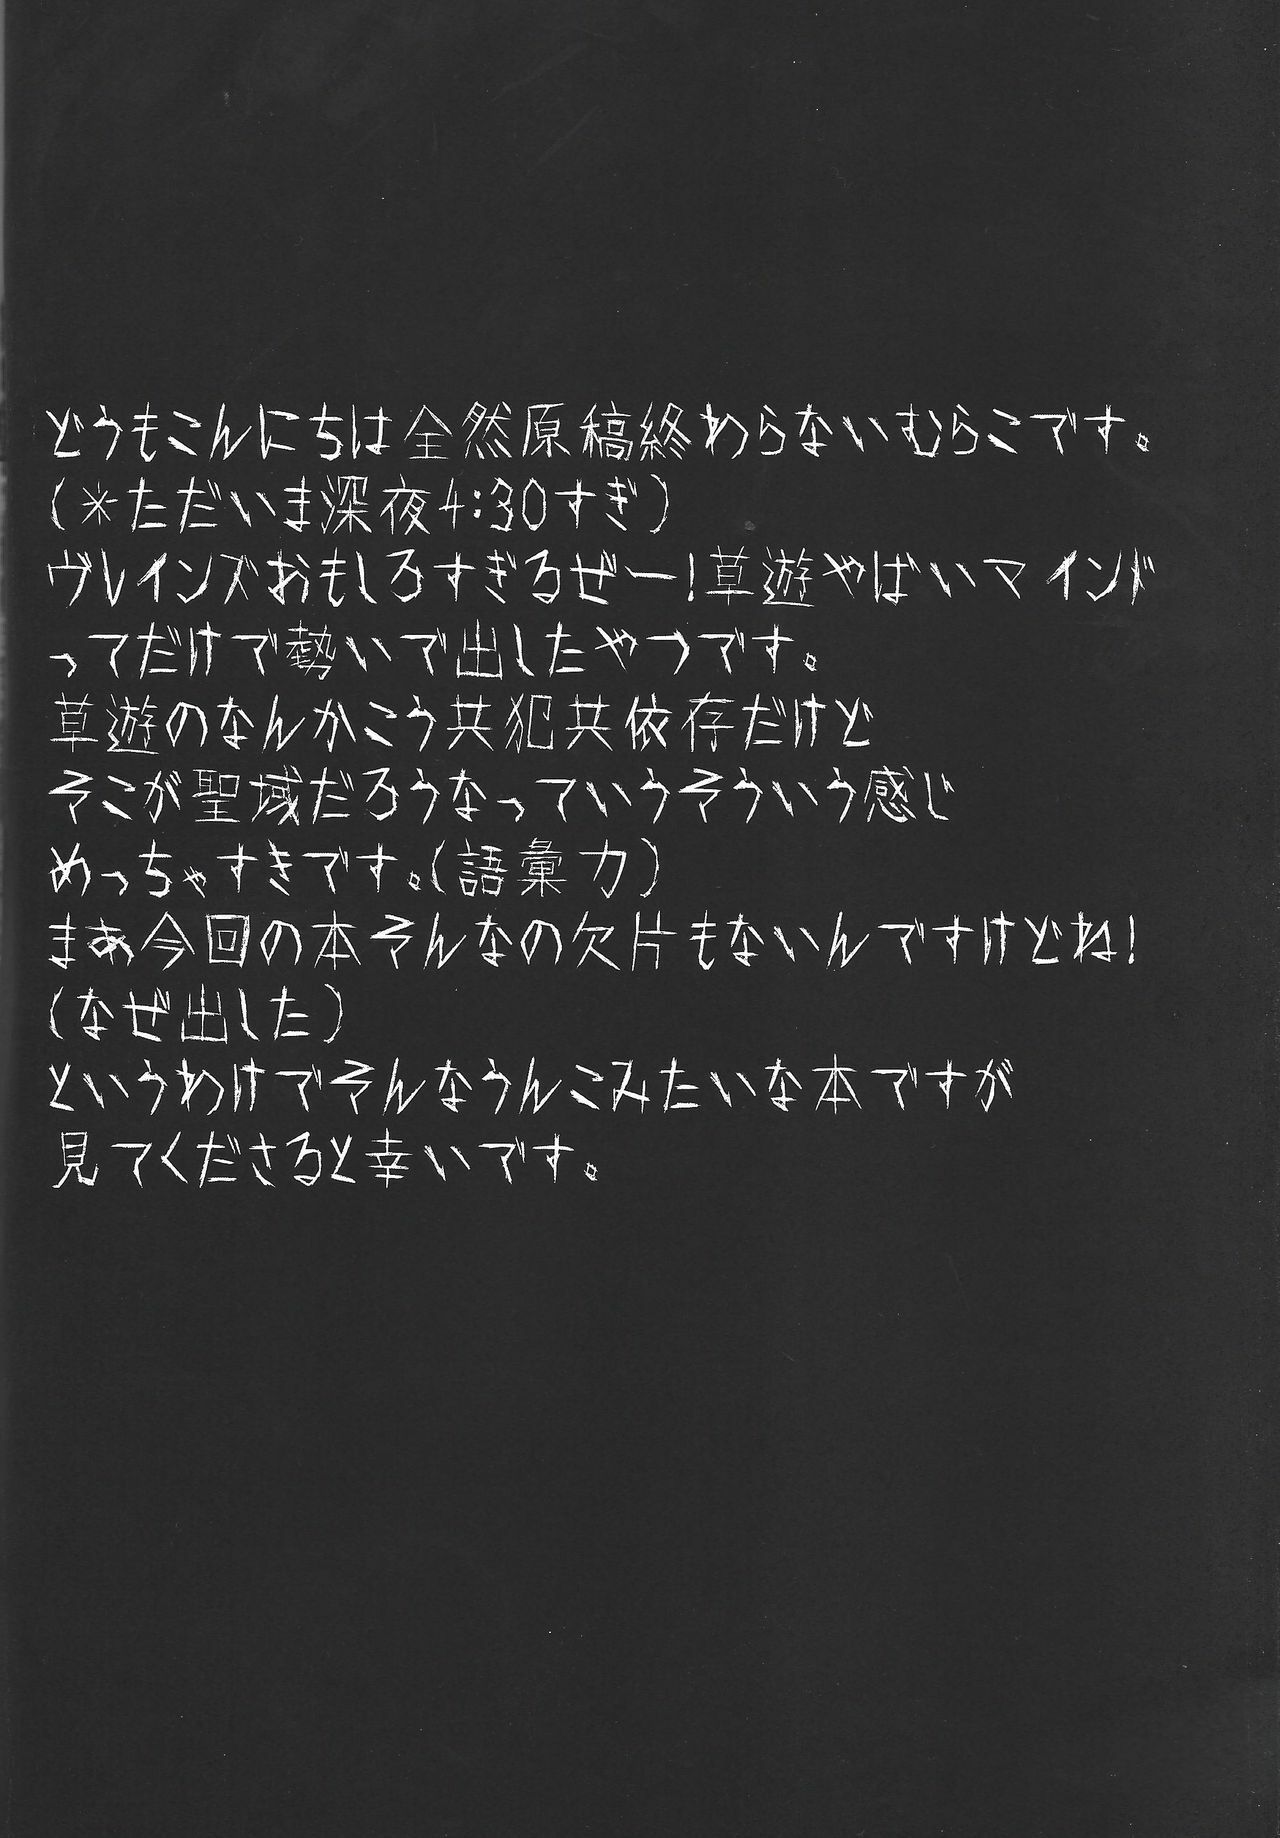 どうもこんにちは全然原稿終わらないむらこです。
(＊ただいま深夜4:30すぎ)
ヴレインズおもしろすぎるぜー!草遊やばいマインド
ってだけで勢いで出したやつです。
草遊のなんかこう共犯共依存だけど
そこが聖域だろうなっていうそういう感じ
めっちゃすきです。(語彙力)
まぁ今回の本そんなの欠片もないんですけどね!
(なぜ出した)
というわけでそんなうんこみたいな本ですが
見てくださると幸いです。